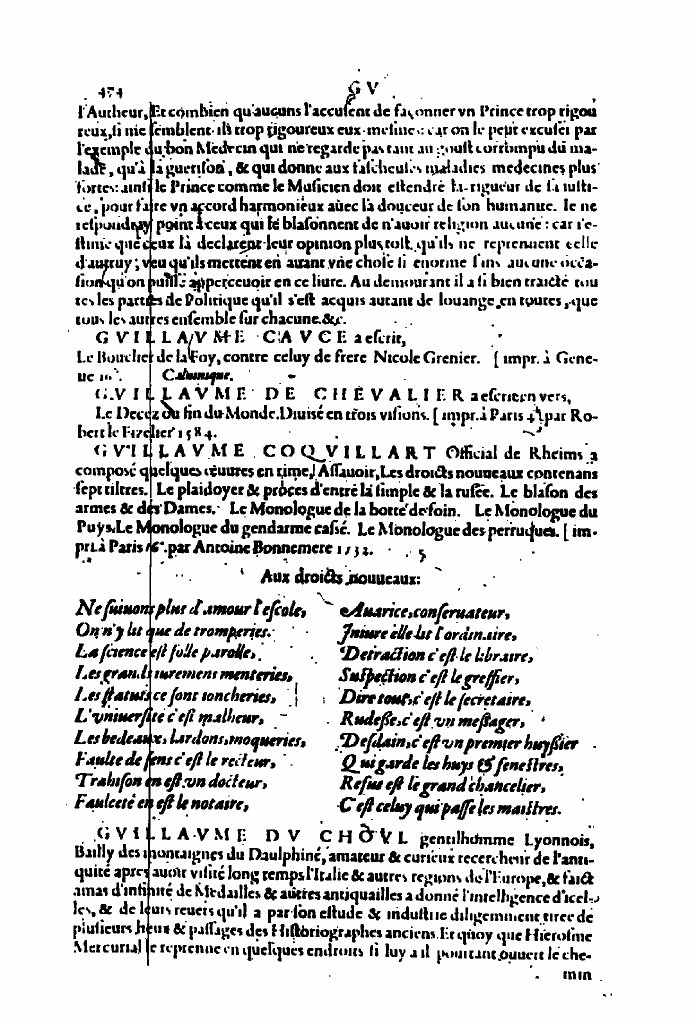 474 GV
l'Autheur, Et combien qu'aucuns l'accusent de façonner vn Prince trop rigou
reux, si me semblent-ils trop rigoureux eux-mesmes: car on le peut excuser par
l'exemple du bon Medecin qui ne regarde pas tant au goust corrompu du ma-
lade, qu'à la guerison, & qui donne aux fascheuses maladies medecines plus
fortes: ainsi le Prince comme le Musicien doit estendre la rigueur de sa iusti-
ce, pour faire vn accord harmonieux auec la douceur de son humanité. Ie ne
respondray point à ceux qui le blasonnent de n'auoir religion aucune: car i'e-
stime que ceux là declarent leur opinion plustost, qu'ils ne reprennent celle
d'autruy; veu qu'ils mettent en auant vne chose si enorme sans aucune occa-
sion qu'on puisse apperceuoir en ce liure. Au demourant il a si bien traicté tou
tes les parties de Politique qu'il s'est acquis autant de louange en toutes, que
tous les autres ensemble sur chacune. &c.
GVILLAVME CAVCE a escrit,
Le Bouclier de la Foy, contre celuy de frere Nicole Grenier. [impr. à Gene-
ue 16°. Calumnique.
GVILLAVME DE CHEVALIER a escrit en vers,
Le Decez ou fin du Monde. Diuisé en trois visions. [impr. à Paris 4°. par Ro-
bert le Fizelier 1584.
GVILLAVME COQVILLART Official de Rheims a
composé quelques œuures en rime, Assauoir, Les droicts nouueaux contenans
sept tiltres. Le plaidoyer & procés d'entre la simple & la rusée. Le blason des
armes & des Dames. Le Monologue de la botte de foin. Le Monologue du
Puys. Le Monologue du gendarme cassé. Le Monologue des perruques. [im-
pr. à Paris 16°. par Antoine Bonnemere 1532.
Aux droicts nouueaux:
Ne suiuons plus d'amour l'escole,
On n'y lit que de tromperies.
La science est folle parolle,
Les grands iurement menteries,
Les statuts ce sont toncheries,
L'vniuersité c'est malheur,
Les bedeaux, lardons, moqueries,
Faulte de sens c'est le recteur,
Trahison en est vn docteur,
Faulceté en est le notaire,
Auarice, conseruateur,
Iniure elle lit l'ordinaire,
Detraction c'est le libraire,
Suspection c'est le greffier,
Dire tout, c'est le secretaire,
Rudesse, c'est vn messager,
Desdain, c'est vn premier huyssier
Qui garde les huys & fenestres,
Refus est le grand chancelier,
C'est celuy qui passe les maistres.
GVILLAVME DV CHOVL gentilhomme Lyonnois,
Bailly des montaignes du Daulphiné, amateur & curieux recercheur de l'anti-
quité apres auoir visité long temps l'Italie & autres regions de l'Europe, & faict
amas d'infinité de Medailles & autres antiquailles a donné l'intelligence d'icel-
les, & de leurs reuers qu'il a par son estude & industrie diligemment tiree de
plusieurs lieux & passages des Historiographes anciens. Et quoy que Hierosme
Mercurial le reprenne en quelques endroits si luy a il pourtant ouuert le che-
min